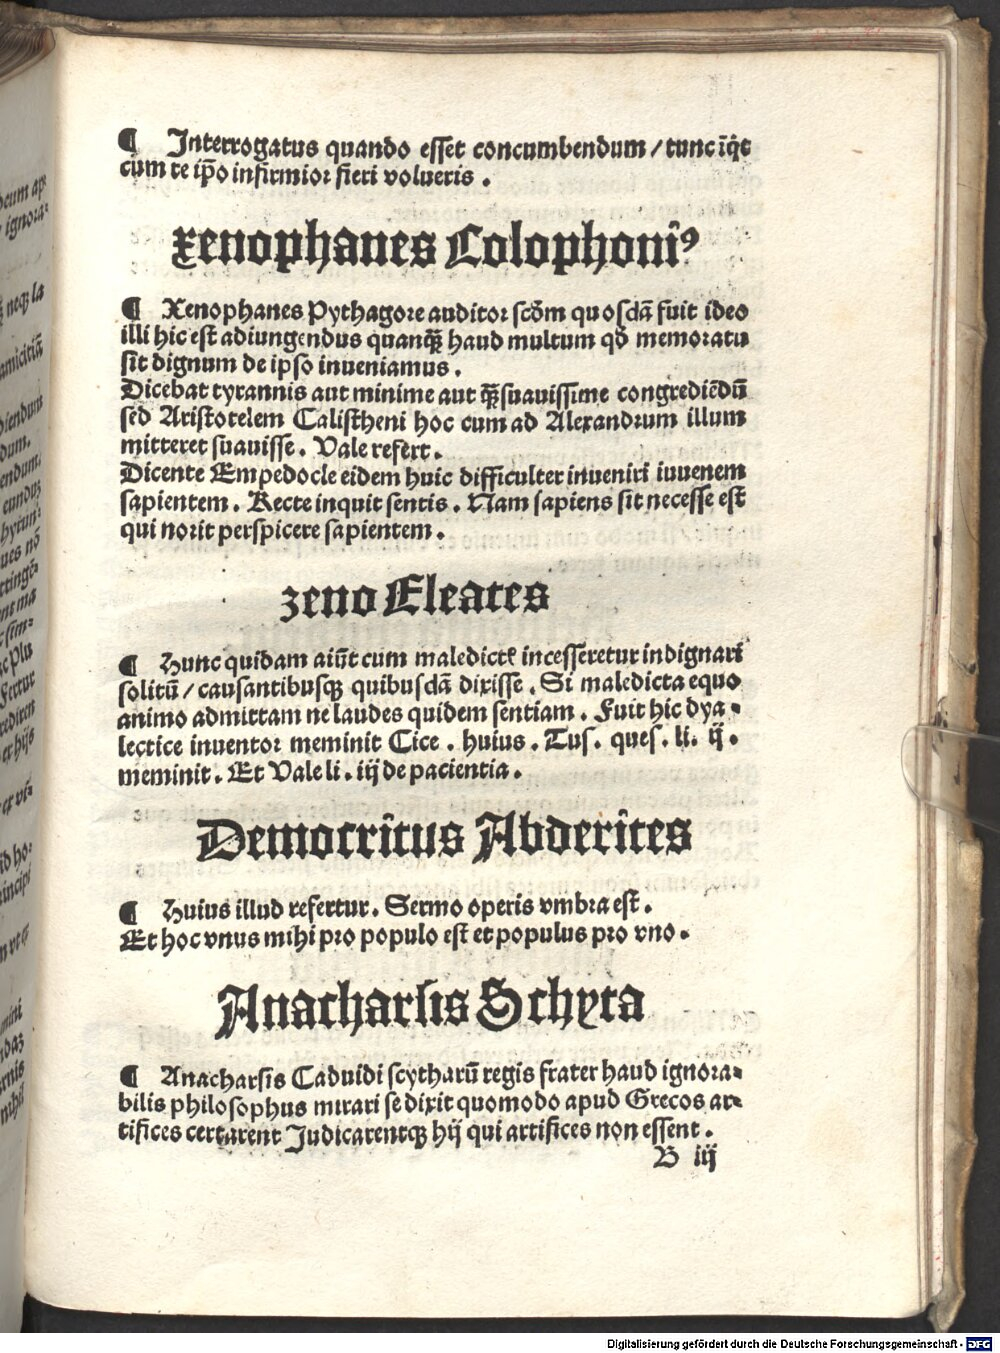 ¶ Interrogatus quando esset concumbendum / tunc īq̄t
cum te ip̄o infirmior fieri volueris .
xenophanes Colophoniꝰ
¶ Xenophanes Pythagore auditor scḋm quosdā fuit ideo
illi hic est adiungendus quanq̄ haud multum qḋ memoratu
sit dignum de ipso inueniamus .
Dicebat tyrannis aut minime aut q̄suauissime congrediēdū
sed Aristotelem Calistheni hoc cum ad Alexandrum illum
mitteret suauisse . Vale refert .
Dicente Empedocle eidem huic difficulter inueniri iuuenem
sapientem . Recte inquit sentis . Nam sapiens sit necesse est
qui norit perspicere sapientem .
zeno Eleates
¶ Hunc quidam aiūt cum maledictꝭ incesseretur indignari
solitū / causantibusqꝫ quibusdā dixisse . Si maledicta equo
animo admittam ne laudes quidem sentiam . Fuit hic dya-
lectice inuentor meminit Cice . huius . Tus . ques . li . ij .
meminit . Et Vale li . iij de pacientia .
Democritus Abderites
¶ Huius illud refertur . Sermo operis vmbra est .
Et hoc vnus mihi pro populo est et populus pro vno .
Anacharsis Schyta
¶ Anacharsis Caduidi scytharū regis frater haud ignora-
bilis philosophus mirari se dixit quomodo apud Grecos ar-
tifices certarent Judicarentqꝫ hij qui artifices non essent .
B iij
Digitalisierung gefördert durch die Deutsche Forschungsgemeinschaft - DFG